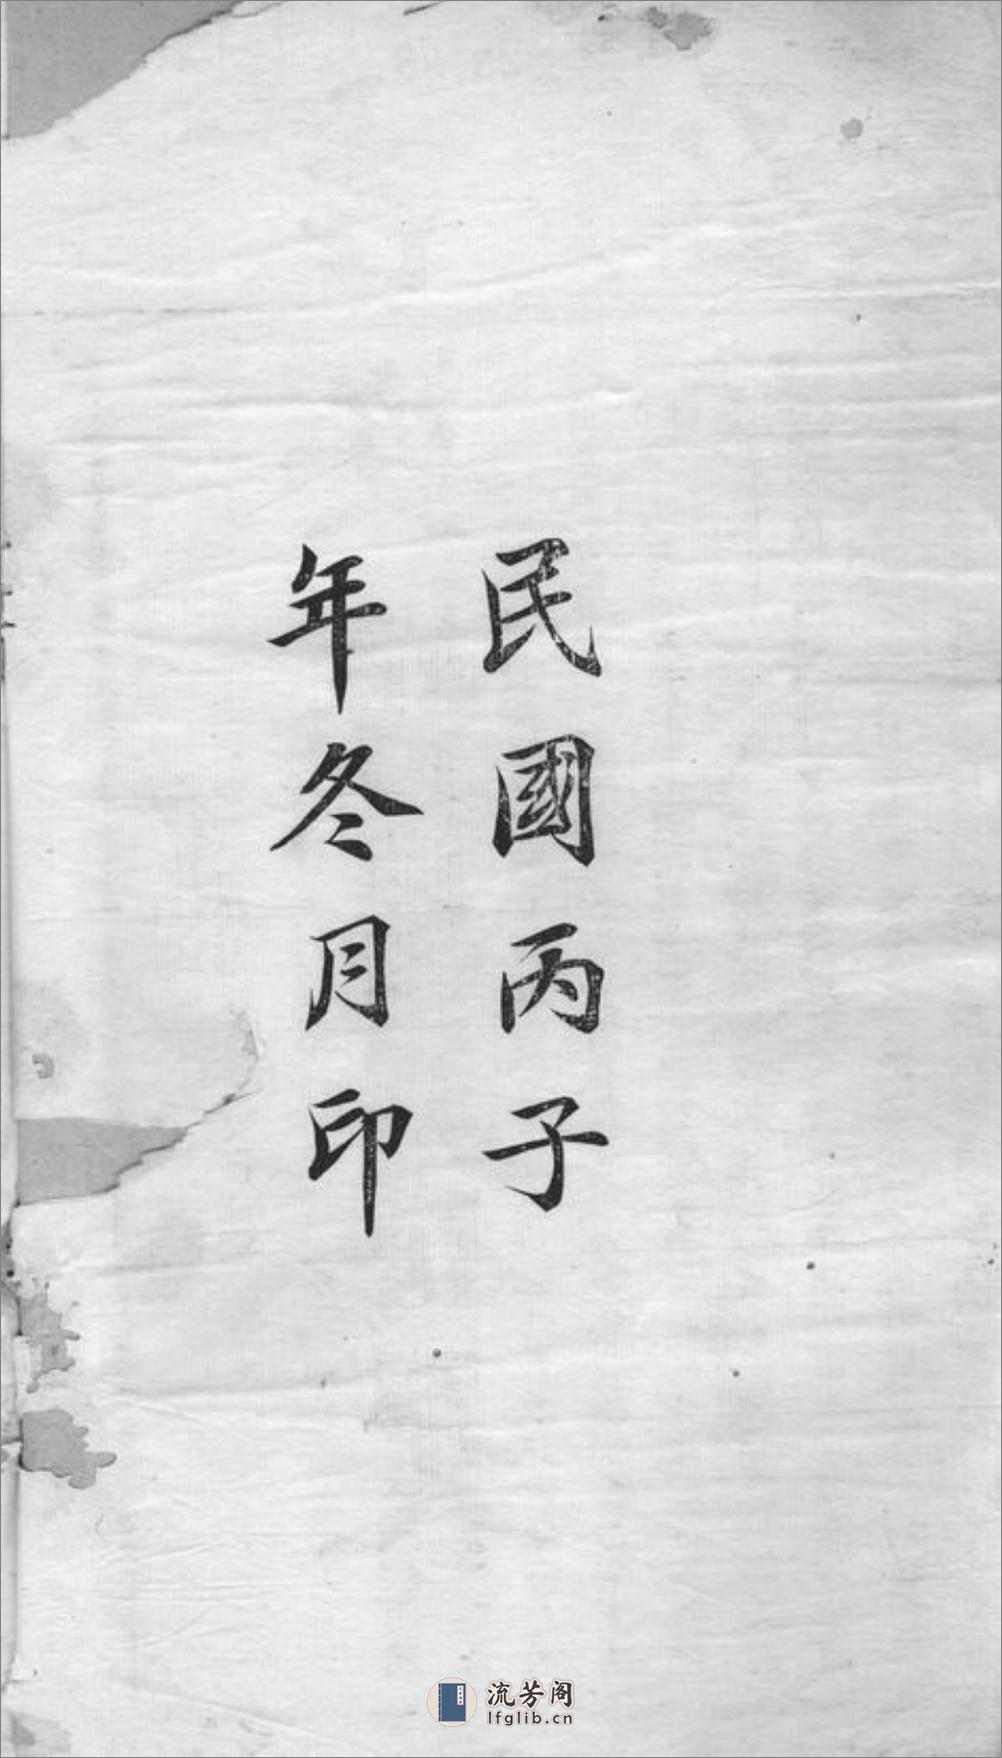 民國丙子
年冬月印
流芳阁
lfglib.cn